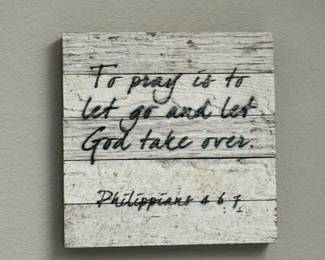 To pray is to
let go and let
God take over.
Philippians 4 6 7